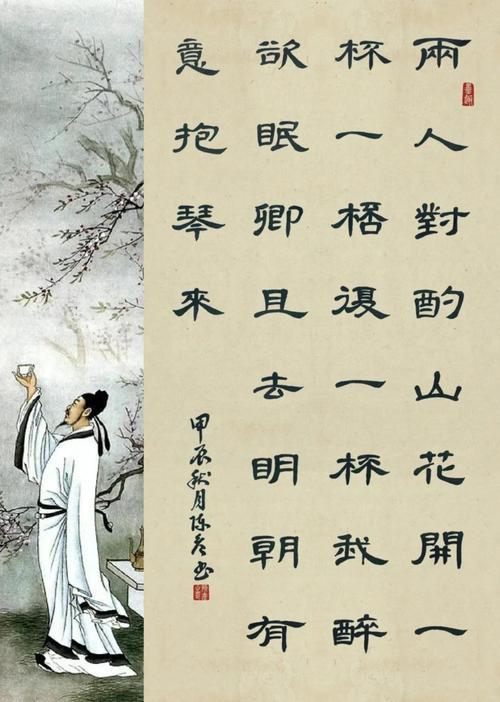 兩人對酌山花開一
杯一桮復一杯我醉
欲眠卿且去明朝有
意抱琴來
甲辰秋月陈书